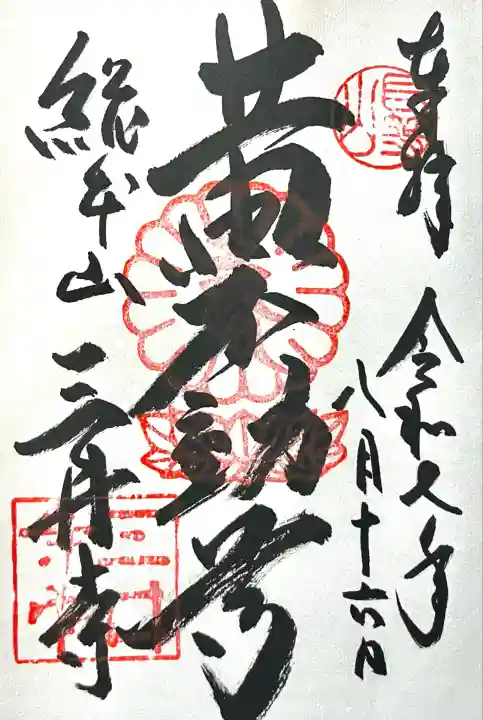 奉拝
令和七年
八月十六日
黄不動尊
總本山
三井寺